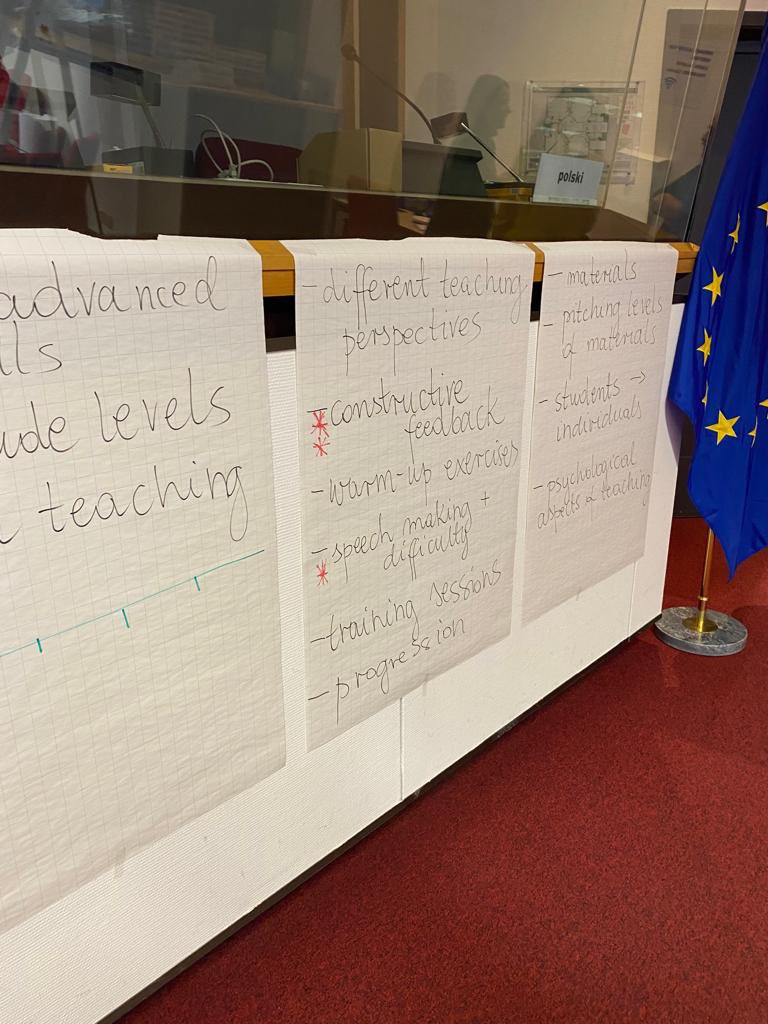 polski
advanced
lls
ude levels
teaching
- different teaching
perspectives
- constructive
feedback
- warm-up exercises
- speech making +
difficulty
- training sessions
- progression
- materials
- pitching levels
of materials
- students →
individuals
- psychological
aspects of teaching